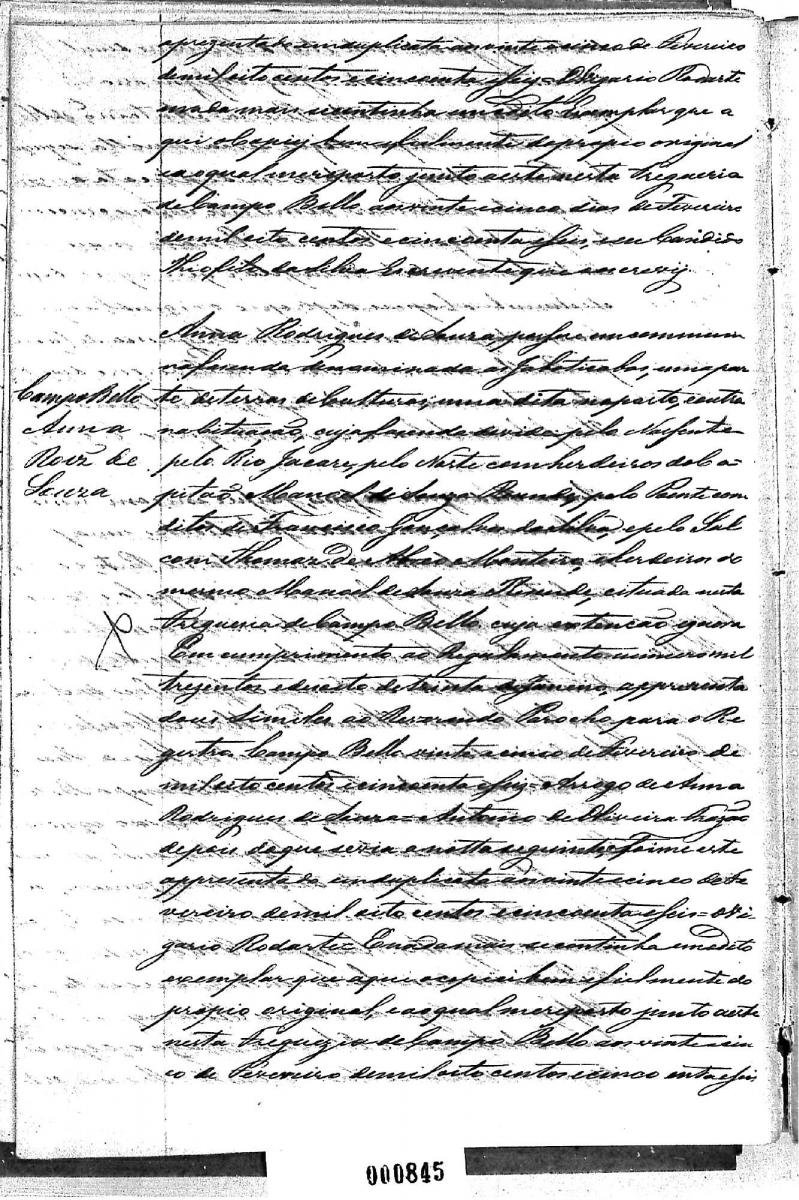 apresentado em duplicata aos vinte e cinco de Fevereiro
de mil eito centos e cincoenta e seis = O Vigario Rodarte
nada mais se continha em o dito Exemplar que a
qui o Copiei bem e fielmente do propio original
e aoqual me reporto junto a este nesta Fregueria
de Campo Bello aos vinte e cinco dias de Fevereiro
de mil eito centos e cincoenta e seis, e eu Candido
Theofilo da Silva Escrevente que o escrevy
Anna Rodrigues de Souza possue em commum
na fazenda denominada as Jaboticabas, uma par
te de terras de Culturas, e uma dita no pasto, contra
na bitação, cuja fazenda devide pelo Nascente
pelo Rio Jacare, pelo Norte com herdeiros do Ca-
pitão Manoel de Souza , pelo Poente com
ditos de Francisco Gonçalves da Silva, e pelo Sul
com Thomaz de Abreo Monteiro, e herdeiros do
mesmo Manoel de Souza Rezende, cituada nesta
Fregueria de Campo Bello cuja extenção ignora
Em cumprimento ao Regulamento numero mil
trezentos e desoito de trinta de Janeiro, appresenta
dous similes ao Reverendo Parocho para o Re
gistro. Campo Bello vinte e cinco de Fevereiro de
mil eito centos e cincoenta e seis = Arrogo de Anna
Rodrigues de Souza = Antonio de Oliveira
depois do que se via a notta seguinte, Foi me este
appresentado em duplicata em vinte e cinco de Fe
vereiro de mil eito centos e cincoenta e seis = O Vi
gario Rodarte = E nada mais se continha em o dito
exemplar que aqui o copiei bem e fielmente do
propio original, e aoqual me reporto junto a este
nesta Freguezia de Campo Bello aos vinte e cin
co de Fevereiro de mil eito centos e cinco enta e seis
Campo Bello
Anna
Roiz de
Souza
000845